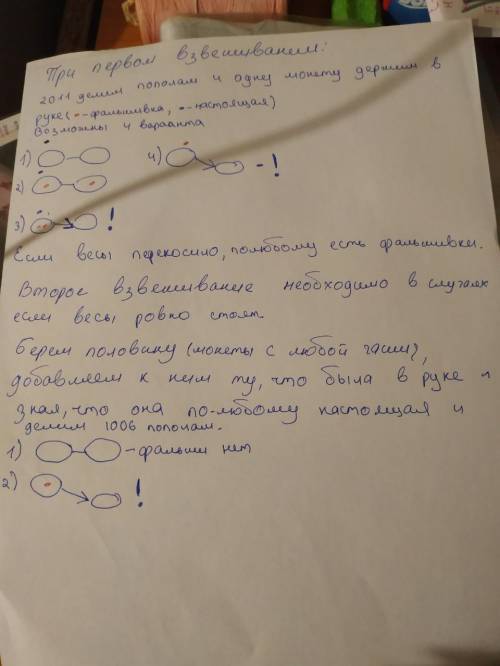 При первом взвешивании:
2011 делим пополам и одну монету держим в
руке( •-фальшивка, •-настоящая)
Возможны 4 варианта
1)
4) - !
2)
3) !
Если весы перекосило, полюбому есть фальшивки.
Второе взвешивание необходимо в случаях
если весы ровно стоят.
Берем половину (монеты с любой чаши),
добавляем к ним ту, что была в руке и
зная, что она по-любому настоящая и
делим 1006 пополам.
1) - фальши нет
2) !